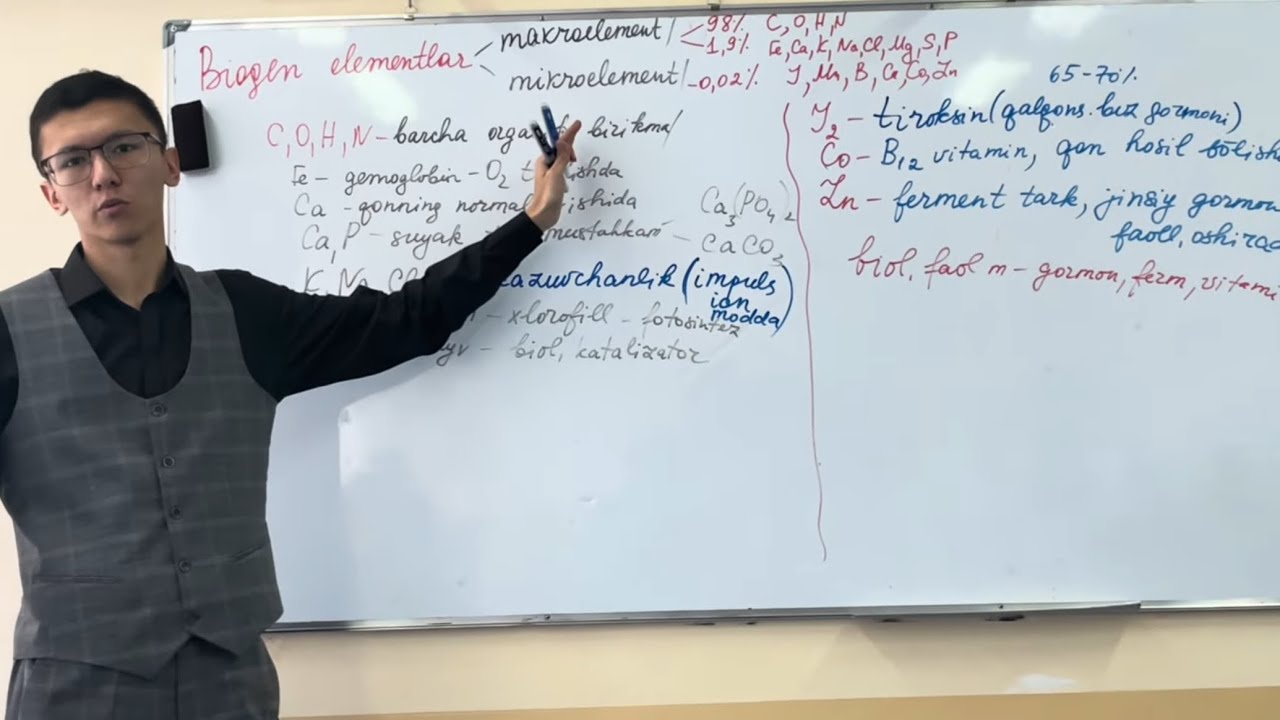 Biogen elementlar
makroelement/
98% C, O, H, N
1,9% Fe, Ca, K, Na, Cl, Mg, S, P
mikroelement/ -0,02% J, Mn, B, Cu, Co, Zn
C, O, H, N - barcha birikma/
Fe - gemoglobin - O2
Ca - qonning normal
Ca, P - suyak mustahkam -
Ca3(PO4)2
CaCO2
K, Na, Cl
(impuls
ion
modda)
- xlorofill - fotosintez
- biol, katalizator
65-70%
J2 - tiroksin (qalqons. bez gormoni)
Co - B12 vitamin, qon hosil bo'lish
Zn - ferment tark, jinsiy gormon
faoll, oshirad
biol, faol m - gormon, ferm, vitami